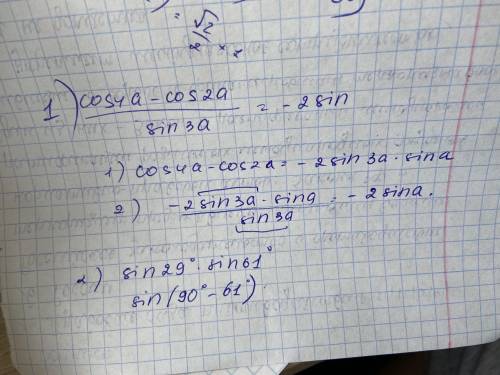 = √2/2
1) (cos4a - cos2a)/(sin3a) = - 2sin
1) cos4a - cos2a = - 2sin3a · sina
2) (- 2sin3a · sina)/(sin3a) = - 2sina.
2) sin29° · sin61°
sin(90° - 61°)